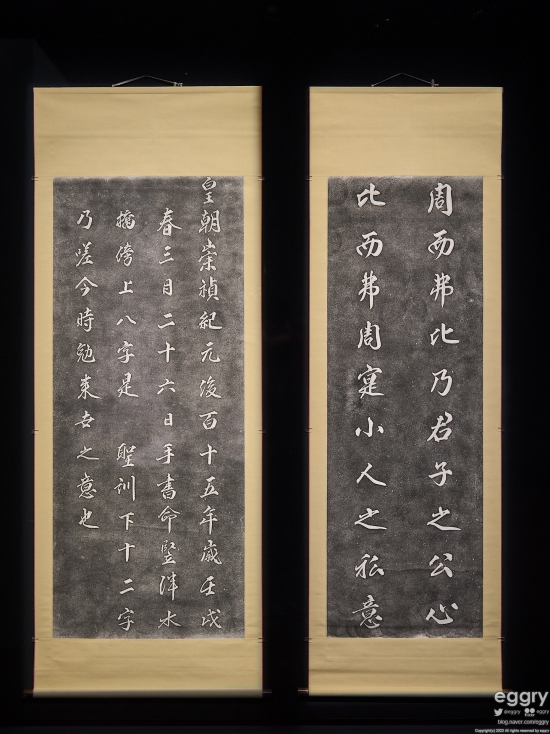 周而弗比乃君子之公心
比而弗周寔小人之私意
皇朝崇禎紀元後百十五年歲壬戌
春三月二十六日手書命竪泮水
橋傍上八字是 聖訓下十二字
乃嗟今時勉來世之意也
eggry
@eggry
blog.naver.com/eggry
All rights reserved by eggry